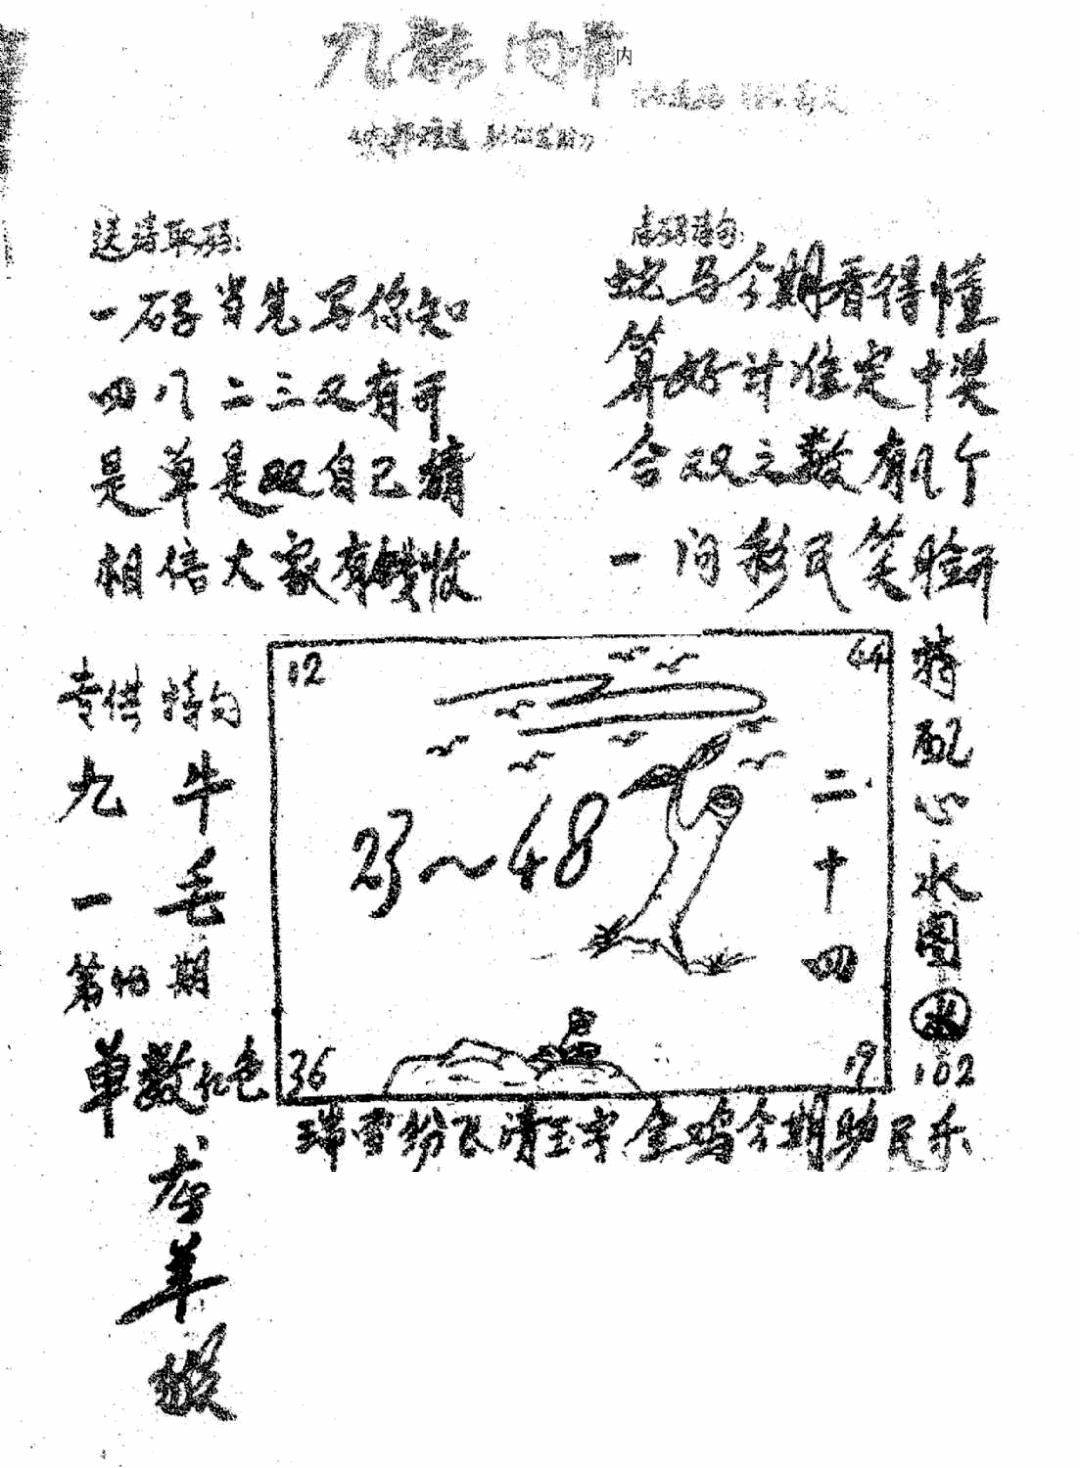 九龍内幕
内
送诗取码:
一码当先写你知
四八二三双有开
是单是双自己猜
相信大家有钱收
蛇马今期看得懂
算好计准定中奖
合双之数有几个
一问彩民笑脸开
专供特肖
九牛一毛
第48期
单数红色
龙
羊
猴
12
44
23～48
二十四
36
19
精配心水图
102
瑞雪纷飞清玉宇
金鸡今期助民乐